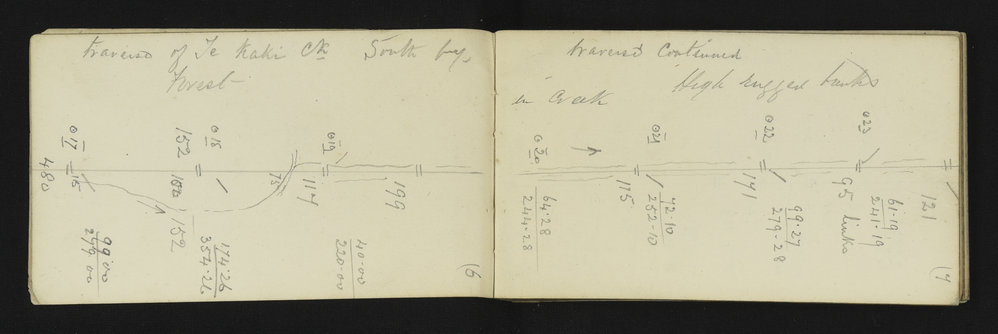 traverse of Te Kaki Ck South bry
Forest
O 17
480
15
99.00
279.00
O 18
152
152
174.26
354.26
75
O 19
114
40.00
220.00
199
(6
traverse Continued
in Creek High rugged banks
O 20
64.28
244.28
O 21
115
72.10
252.10
O 22
141
99.27
279.28
O 23
95 links
61.19
241.19
121
(7